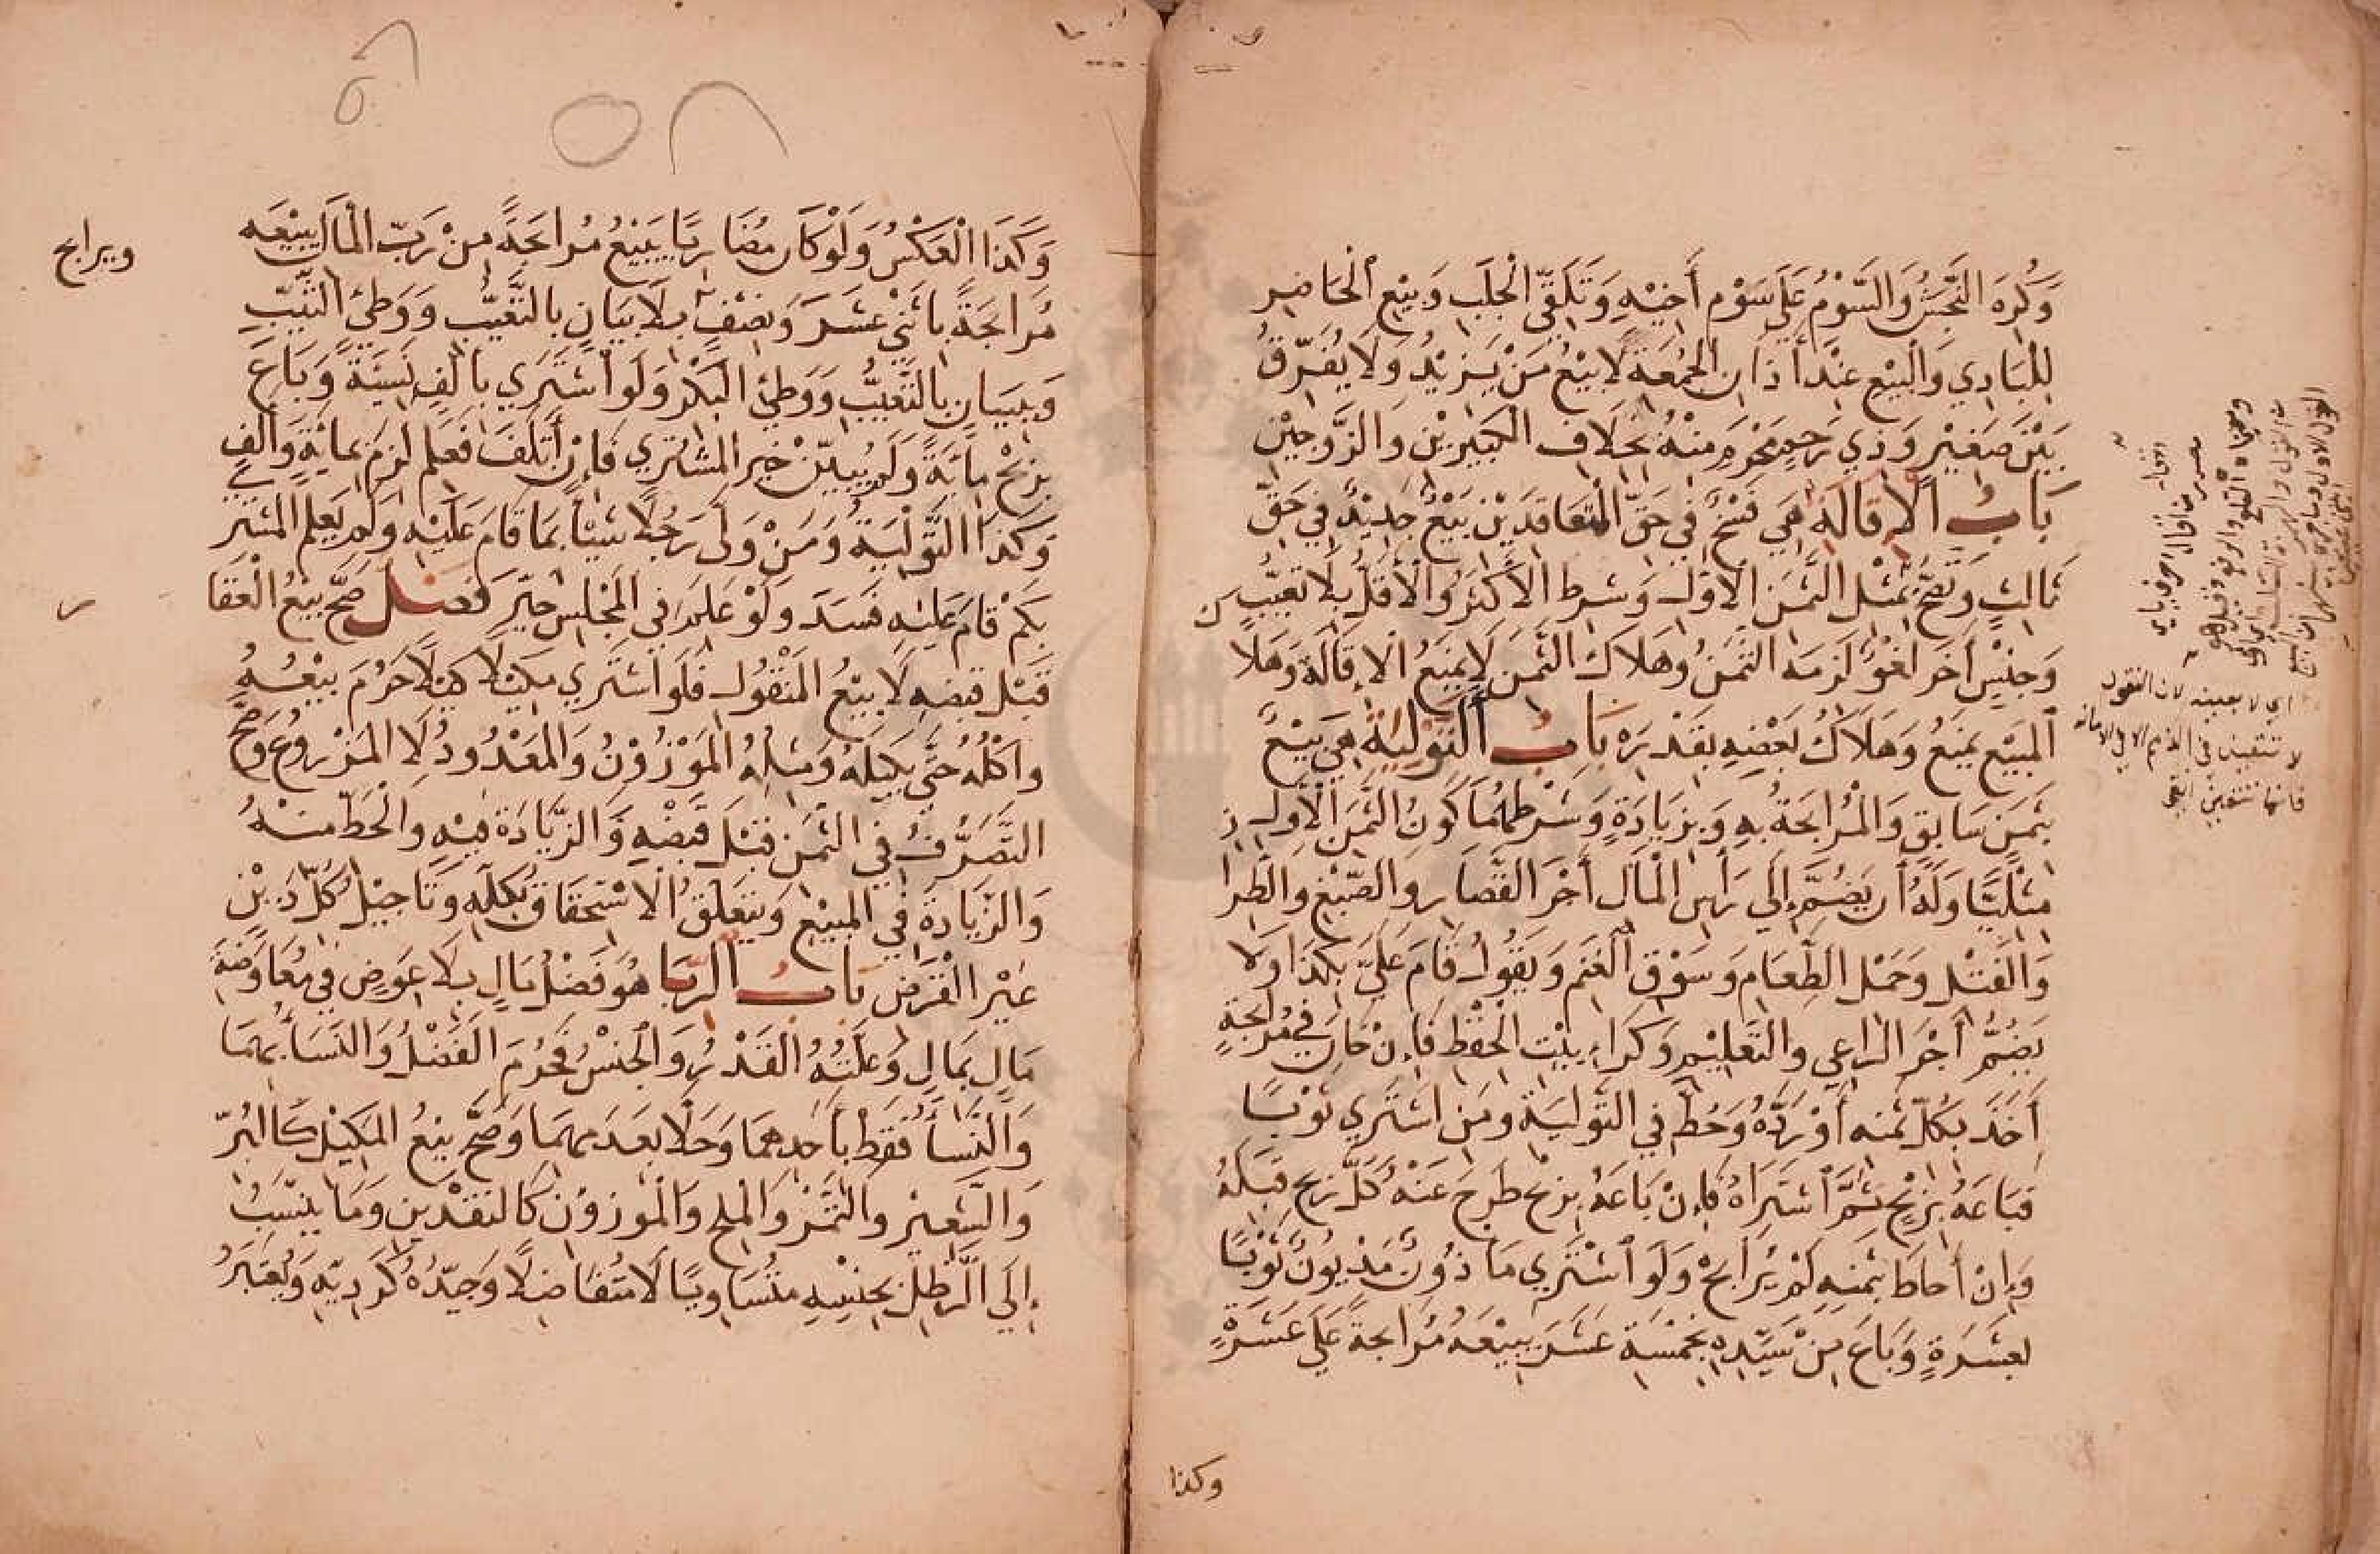 وَكُرِهَ النَّجَشُ وَالسَّوْمُ عَلَى سَوْمِ أَخِيْهِ وَتَلَقِّي الْجَلَبِ وَبَيْعِ الْحَاضِرِ
لِلْبَادِي وَالْبَيْعِ عِنْدَ أَذَانِ الْجُمُعَةِ لَا بَيْعُ مَنْ يَزِيْدُ وَلَا يُفَرَّقُ
بَيْنَ صَغِيْرٍ وَذِي رَحِمٍ مَحْرَمٍ مِنْهُ بِخِلَافِ الْكَبِيْرَيْنِ وَالزَّوْجَيْنِ
بَابُ الْإِقَالَةِ هِيَ فَسْخٌ فِي حَقِّ الْمُتَعَاقِدَيْنِ بَيْعٌ جَدِيْدٌ فِي حَقِّ
ثَالِثٍ وَتَصِحُّ بِمِثْلِ الثَّمَنِ الْأَوَّلِ وَشَرْطُ الْأَكْثَرِ وَالْأَقَلِّ بِلَا تَعَيُّبٍ
وَجِنْسٍ آخَرَ لَغْوٌ لَزِمَهُ الثَّمَنُ وَهَلَاكُ الثَّمَنِ لَا يَمْنَعُ الْإِقَالَةَ وَهَلَا ك
الْمَبِيْعِ يَمْنَعُ وَهَلَاكُ بَعْضِهِ بِقَدْرِهِ بَابُ التَّوْلِيَةِ هِيَ بَيْعٌ
بِثَمَنٍ سَابِقٍ وَالْمُرَابَحَةُ بِهِ وَبِزِيَادَةٍ وَشَرْطُهُمَا كَوْنُ الثَّمَنِ الْأَوَّلِ
مِثْلِيًّا وَلَهُ أَنْ يَضُمَّ إِلَى رَأْسِ الْمَالِ أَجْرَ الْقَصَّارِ وَالصَّبْغِ وَالطِّرَا ز
وَالْفَتْلِ وَحَمْلِ الطَّعَامِ وَسَوْقِ الْغَنَمِ وَيَقُوْلُ قَامَ عَلَيَّ بِكَذَا وَلَا
يَضُمُّ أَجْرَ الرَّاعِي وَالتَّعْلِيْمِ وَكِرَاءِ بَيْتِ الْحِفْظِ فَإِنْ خَانَ فِي مُرَابَحَةٍ
أَخَذَ بِكُلِّ ثَمَنِهِ أَوْ رَدَّهُ وَحَطَّ فِي التَّوْلِيَةِ وَمَنِ اشْتَرَى ثَوْبًا
فَبَاعَهُ بِرِبْحٍ ثُمَّ اشْتَرَاهُ فَإِنْ بَاعَهُ بِرِبْحٍ طَرَحَ عَنْهُ كُلَّ رِبْحٍ قَبْلَهُ
وَإِنْ أَحَاطَ بِثَمَنِهِ لَمْ يُرَابِحْ وَلَوِ اشْتَرَى مَأْذُوْنٌ مَدْيُوْنٌ ثَوْبًا
بِعَشَرَةٍ وَبَاعَ مِنْ سَيِّدِهِ بِخَمْسَةَ عَشَرَ يَبِيْعُهُ مُرَابَحَةً عَلَى عَشَرَةٍ
وكذا
اي لا بعينه لان النقود
لا تتعين في
فانها تتعين انتهى
وَكَذَا الْعَكْسُ وَلَوْ كَانَ مُضَارِبًا يَبِيْعُ مُرَابَحَةً مِنْ رَبِّ الْمَالِ يَبِيْعُهُ
مُرَابَحَةً بِاثْنَيْ عَشَرَ وَنِصْفٍ بِلَا بَيَانٍ بِالتَّعَيُّبِ وَوَطْئِ الثَّيِّبِ
ويرابح
وَبِبَيَانٍ بِالتَّعْيِيْبِ وَوَطْئِ الْبِكْرِ وَلَوِ اشْتَرَى بِأَلْفٍ نَسِيْئَةً وَبَاعَ
بِرِبْحِ مِائَةٍ وَلَمْ يُبَيِّنْ خُيِّرَ الْمُشْتَرِي فَإِنْ أَتْلَفَ فَعَلِمَ لَزِمَ بِمِائَةٍ وَأَلْفٍ
وَكَذَا التَّوْلِيَةُ وَمَنْ وَلَّى رَجُلًا شَيْئًا بِمَا قَامَ عَلَيْهِ وَلَمْ يَعْلَمِ الْمُشْتَرِي
بِكَمْ قَامَ عَلَيْهِ فَسَدَ وَلَوْ عَلِمَ فِي الْمَجْلِسِ خُيِّرَ فَصْلٌ صَحَّ بَيْعُ الْعَقَا ر
قَبْلَ قَبْضِهِ لَا بَيْعُ الْمَنْقُوْلِ فَلَوِ اشْتَرَى مَكِيْلًا كَيْلًا حَرُمَ بَيْعُهُ
وَأَكْلُهُ حَتَّى يَكِيْلَهُ وَمِثْلُهُ الْمَوْزُوْنُ وَالْمَعْدُوْدُ لَا الْمَزْرُوْعُ وَصَحَّ
التَّصَرُّفُ فِي الثَّمَنِ قَبْلَ قَبْضِهِ وَالزِّيَادَةُ فِيْهِ وَالْحَطُّ مِنْهُ
وَالزِّيَادَةُ فِي الْمَبِيْعِ وَيَتَعَلَّقُ الْاِسْتِحْقَاقُ بِكُلِّهِ وَتَأْجِيْلُ كُلِّ دَيْنٍ
غَيْرِ الْقَرْضِ بَابُ الرِّبَا هُوَ فَضْلُ مَالٍ بِلَا عِوَضٍ فِي مُعَاوَضَةِ
مَالٍ بِمَالٍ وَعِلَّتُهُ الْقَدْرُ وَالْجِنْسُ فَحَرُمَ الْفَضْلُ وَالنَّسَأُ بِهِمَا
وَالنَّسَأُ فَقَطْ بِأَحَدِهِمَا وَحَلَّا بِعَدَمِهِمَا وَصَحَّ بَيْعُ الْمَكِيْلِ كَالْبُرِّ
وَالشَّعِيْرِ وَالتَّمْرِ وَالْمِلْحِ وَالْمَوْزُوْنِ كَالنَّقْدَيْنِ وَمَا يُنْسَبُ
إِلَى الرَّطْلِ بِجِنْسِهِ مُتَسَاوِيًا لَا مُتَفَاضِلًا وَجَيِّدُهُ كَرَدِيِّهِ وَيُعْتَبَرُ